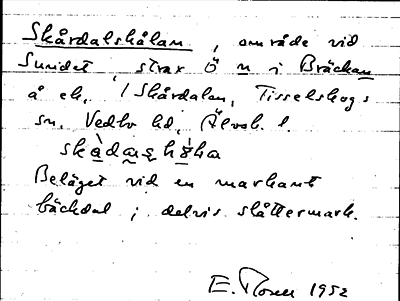 Skårdalshålan, område vid
Sundet, strax Ö n i Bräckan
å ek. / Skårdalen, Tisselskogs
sn, Vedbo hd, Älvsb. l.
Beläget vid en markant
bäckdal; delvis slåttermark.
E. 1952